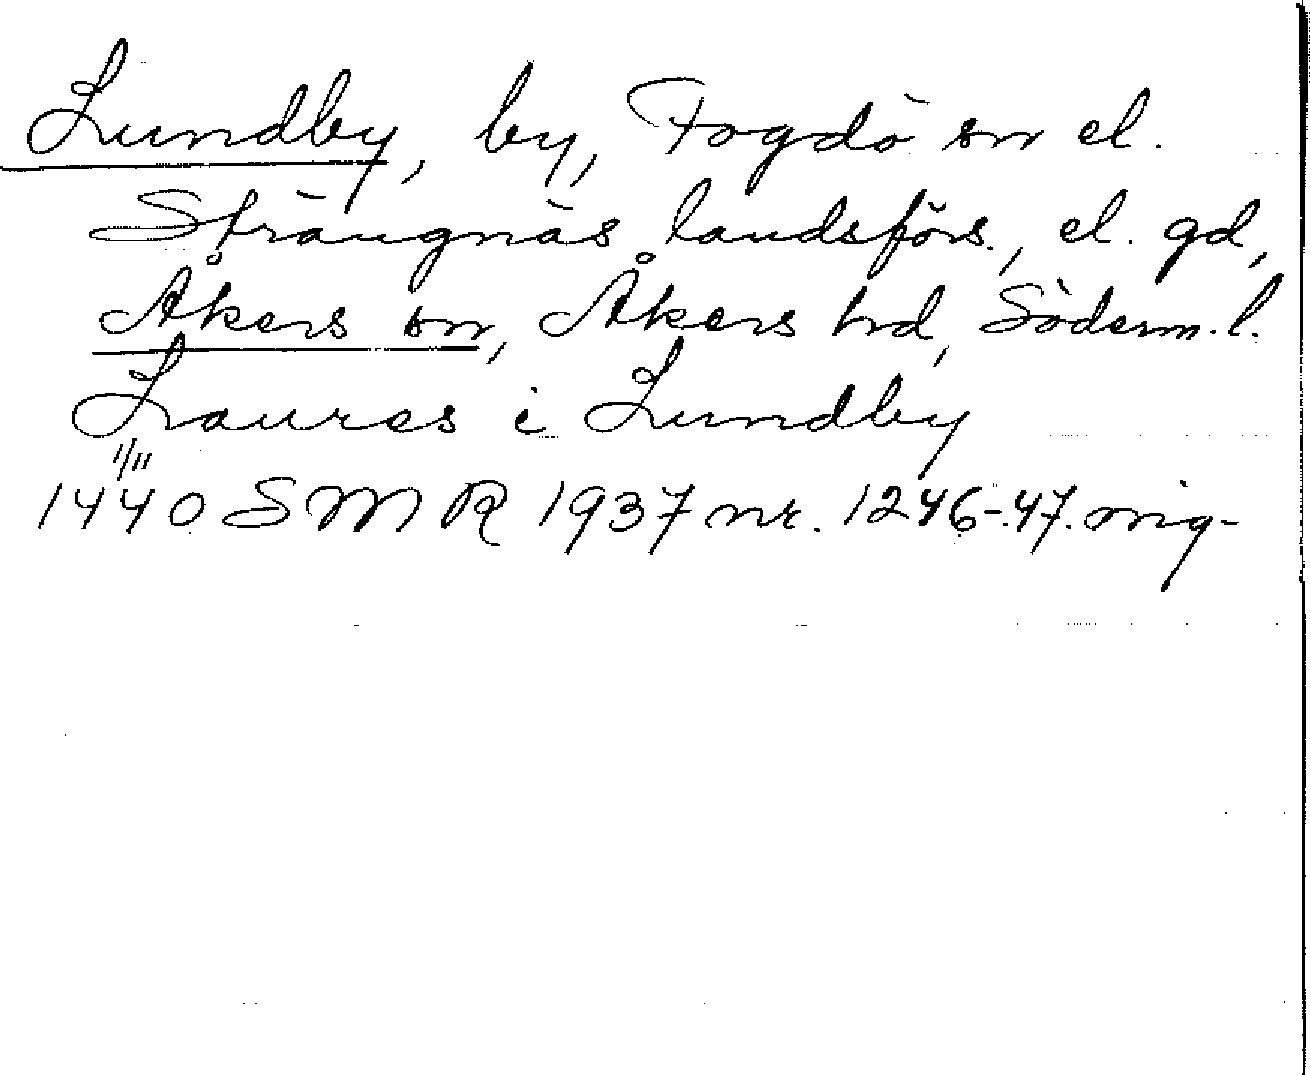 Lundby, by, Fogdö sn el.
Strängnäs landsförs., el. gd,
Åkers sn, Åkers hd, Söderm. l.
Laures i Lundby
1/11
1440 SMR 1937 nr. 1246-47. orig-